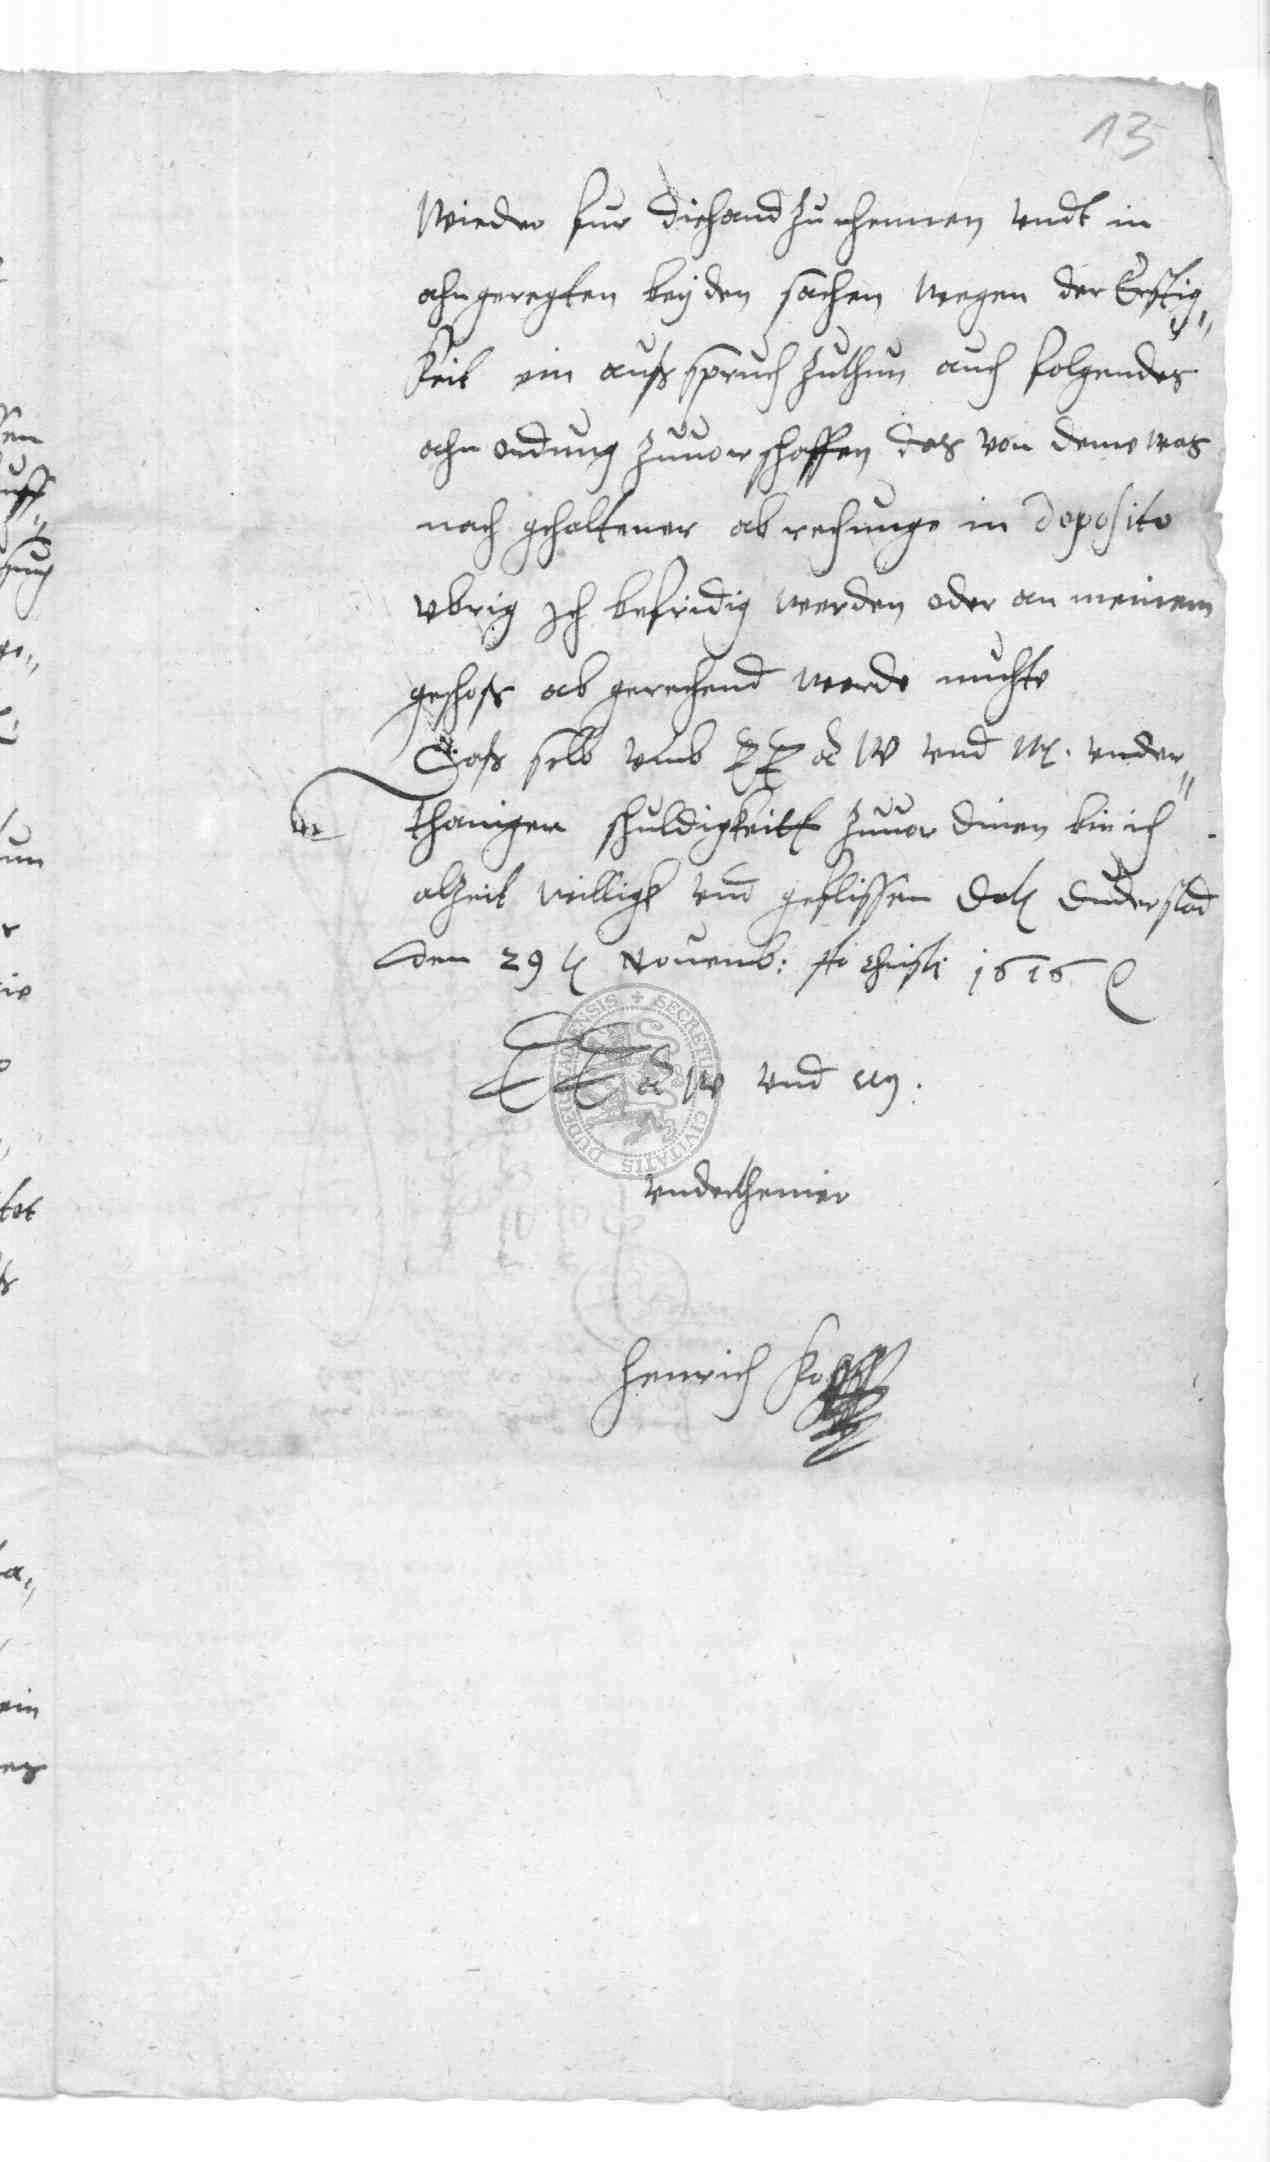 13
Wieder fur diehand zu nhemen vndt in
ahngeregten beyden sachen wegen der Erstig„
keit ein außspruch zuthun auch folgendes
ahnordnung zuuorschaffen das von deme was
nach gehaltener abrechnunge in deposito
vbrig Ich befridig werden oder an meinem
geschoß abgerechend werde muchte
Daß selb vmb EE a W vnd Mg. vnder„
thanigen schuldigkeitt zuuor dinen bin ich
alzeit willigk vnd geflissen Dat Duderstad
den 29 t Nouemb: Ao Christi 1616
EE a W vnd Mg.
vnderthenier
Henrich
SECRETUM CIVITATIS